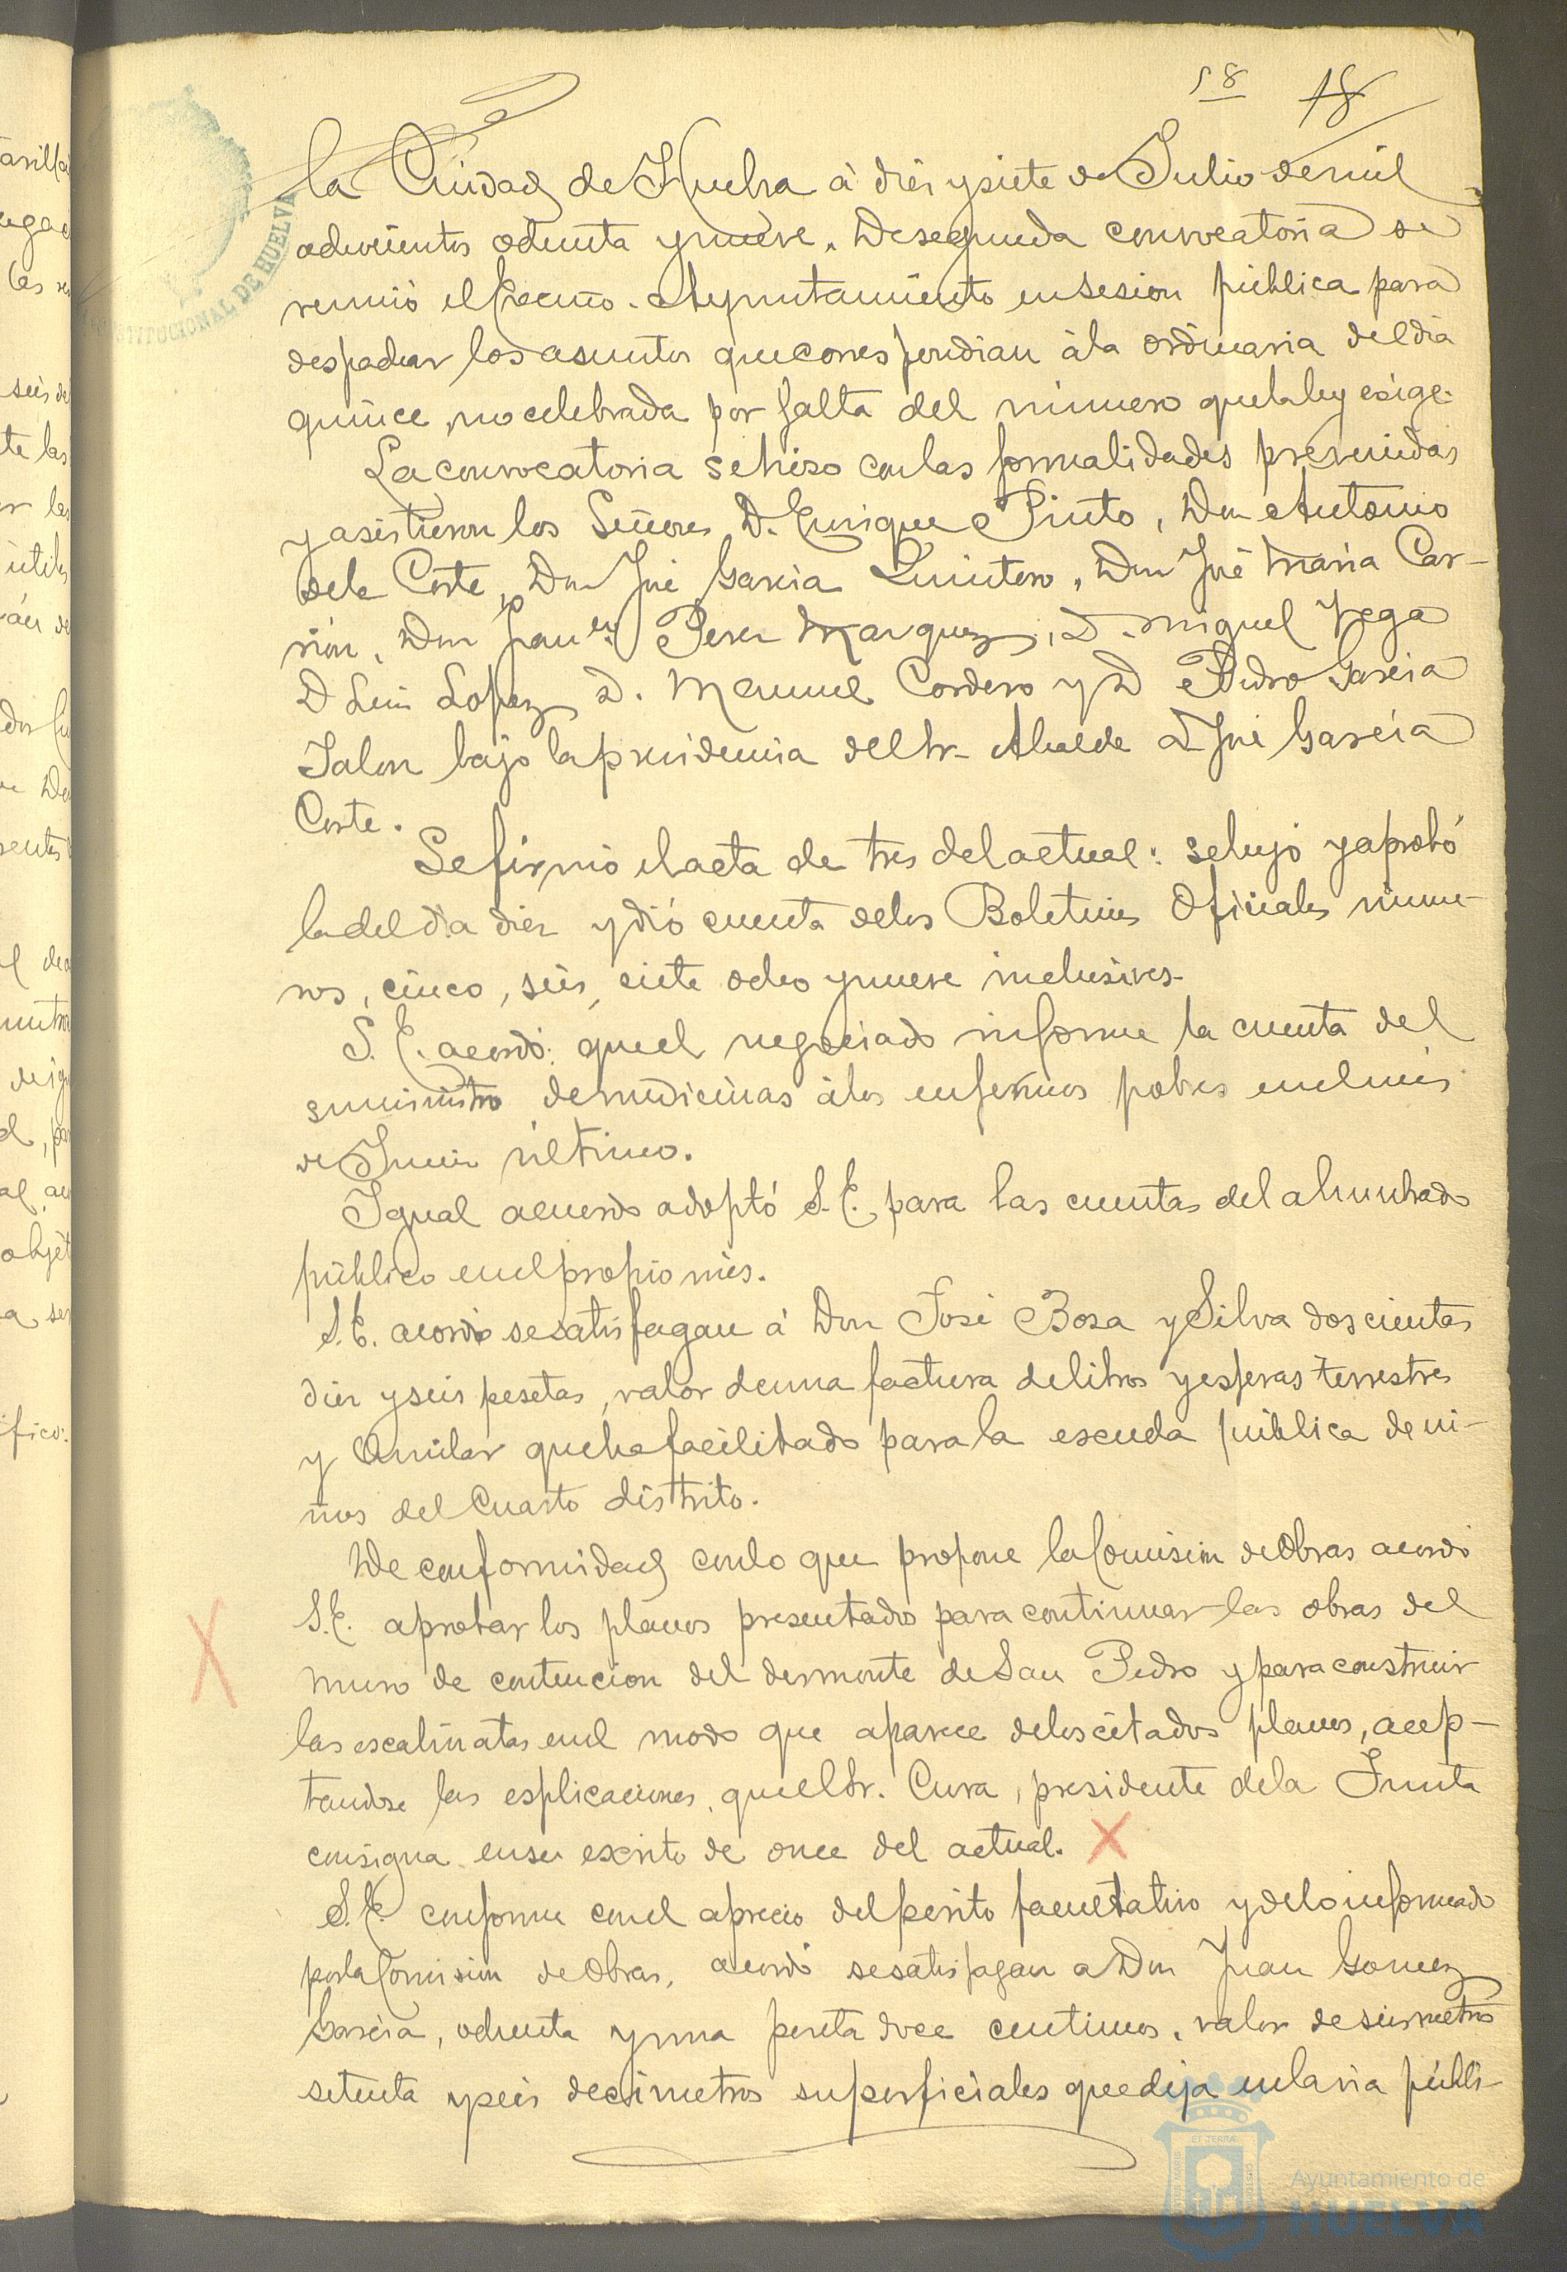 58 18
la Ciudad de Huelva á diéz y siete de Julio de mil
ochocientos ochenta y nueve. De segunda convocatoria se
reunió el Excmo. Ayuntamiento en sesion pública para
despachar los asuntos que correspondian á la ordinaria del dia
quince, no celebrada por falta del número que la ley exige.
La convocatoria se hizo con las formalidades prevenidas
y asistieron los Señores D. Enrique Pinto, Don Antonio
de la Corte, Don José Garcia Quintero, Don José Maria Car-
rión, Don Juan Perez Marquez, D. Miguel Vega
D Luis Lopez D. Manuel Cordero y D Pedro Garcia
Jalon bajo la presidencia del Sr. Alcalde D José Garcia
Corte.
Se firmó el acta de tres del actual: se leyó y aprobó
la del dia diez y dió cuenta de los Boletines Oficiales núme-
ros, cinco, seis, siete ocho y nueve inclusives.
S. E. acordó: que el negociado informe la cuenta del
suministro de medicinas á los enfermos pobres en el mes
de Junio último.
Igual acuerdo adoptó S. E. para las cuentas del alumbrado
público en el propio mes.
S. E. acordó se satisfagan á Don José Bosa y Silva doscientas
diez y seis pesetas, valor de una factura de libros y esferas terrestres
y Armilar que ha facilitado para la escuela pública de ni-
ños del Cuarto distrito.
De conformidad con lo que propone la Comision de Obras acordó
S. E. aprobar los planos presentados para continuar las obras del
muro de contencion del desmonte de San Pedro y para construir
las escalinatas en el modo que aparece de los citados planos, acep-
tandose las esplicaciones, que el Sr. Cura, presidente de la Junta
consigna en su escrito de once del actual.
S. E. conforme con el aprecio del perito facultativo y de lo informado
por la Comision de Obras, acordó se satisfagan a Don Juan Gomez
Garcia, ochenta y una peseta doce centimos, valor de seis metros
setenta y seis decimetros superficiales que deja en la via públi-
CONSTITUCIONAL DE HUELVA
Ayuntamiento de
HUELVA